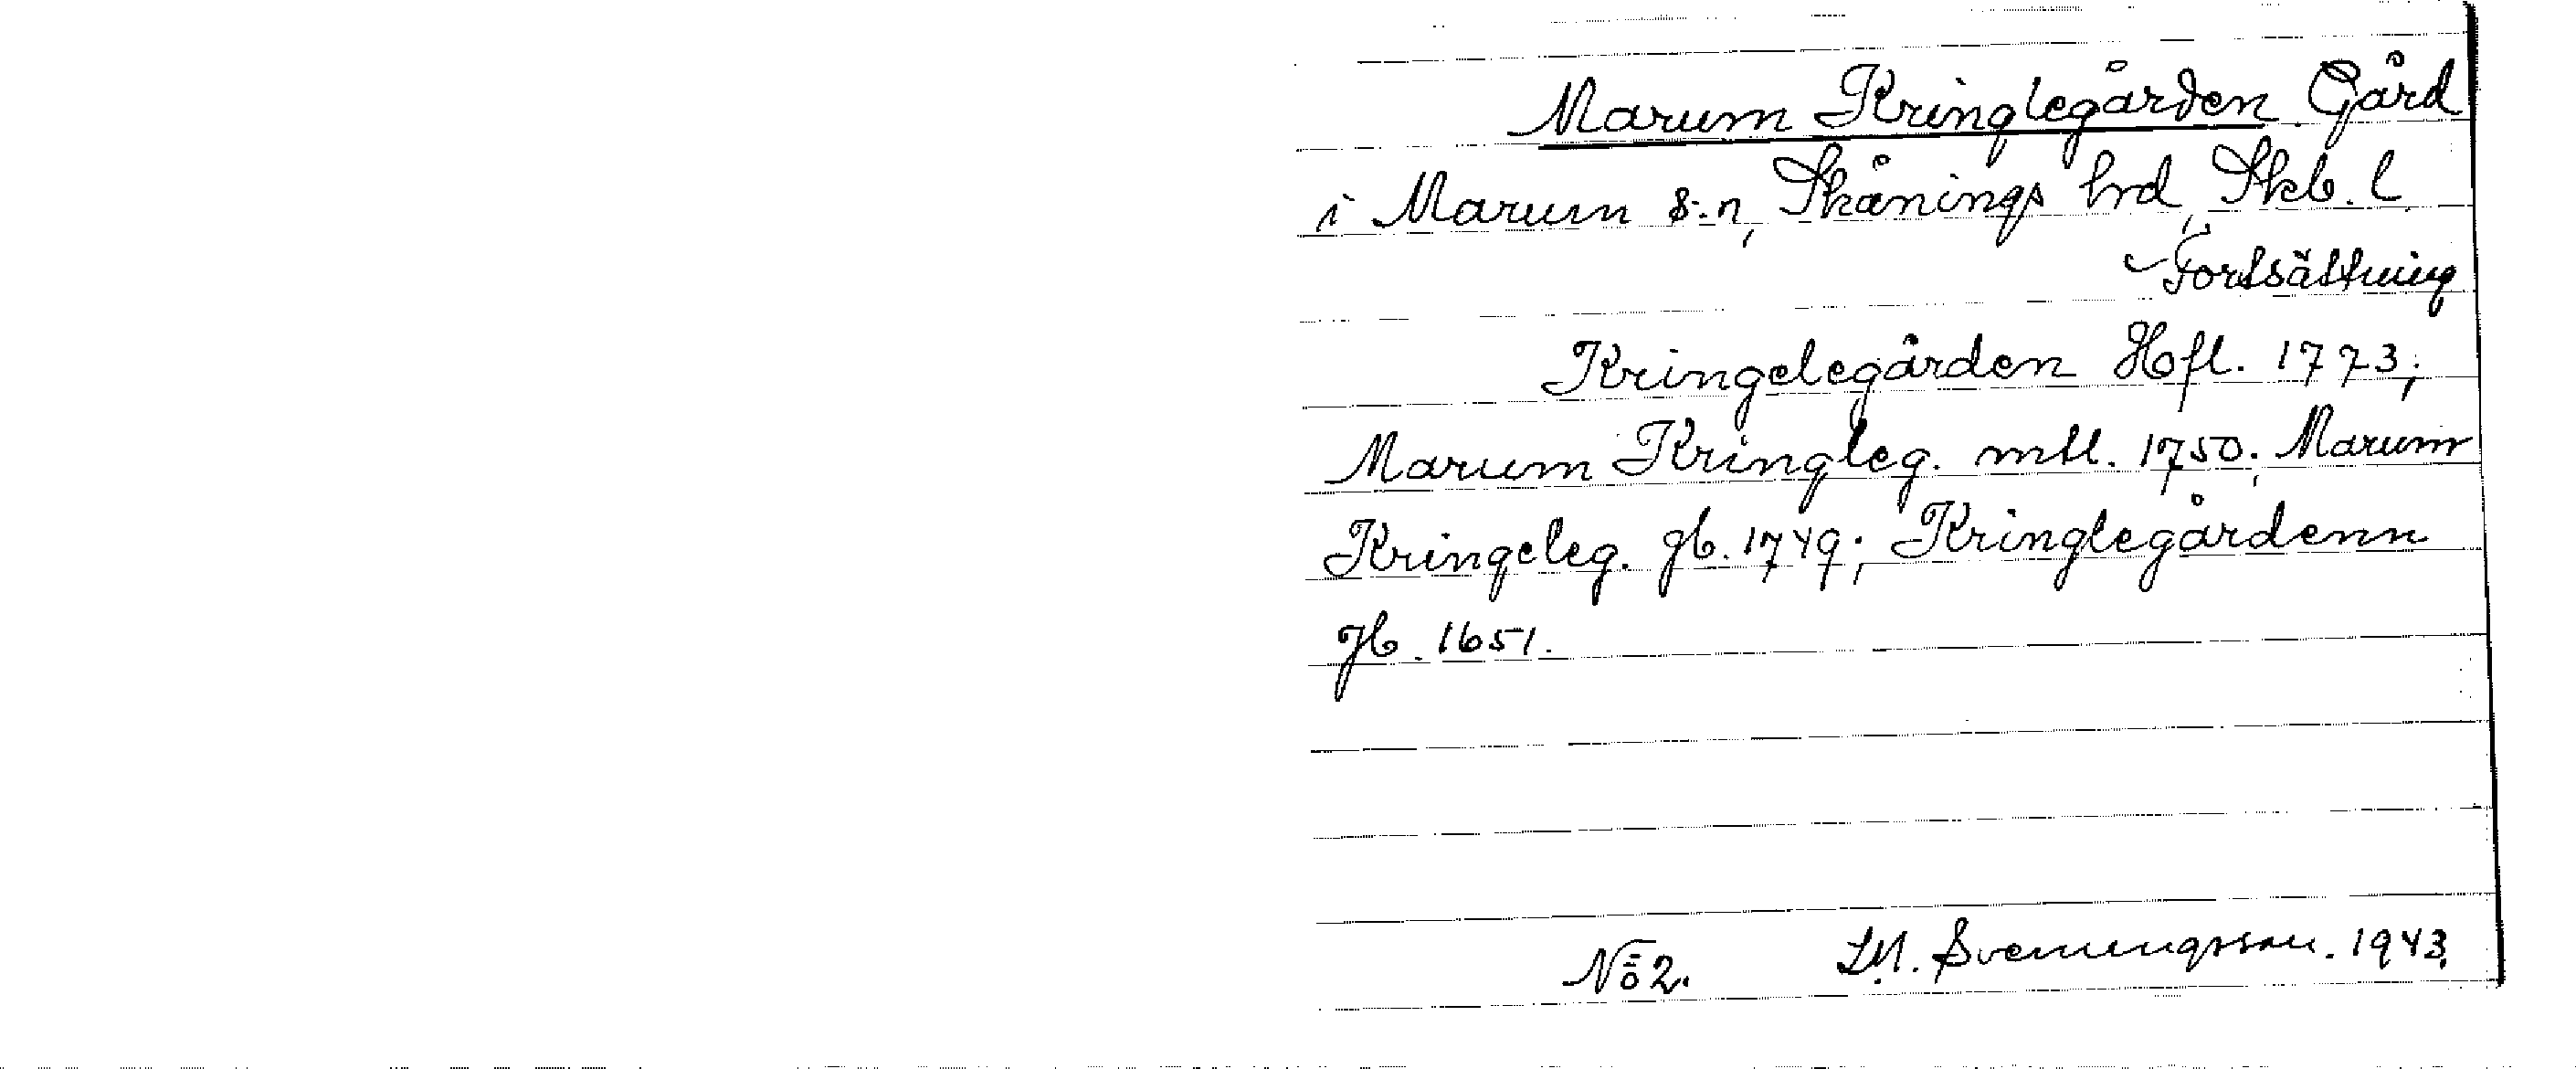 Marum Kringlegården. Gård
i Marum s:n, Skånings hrd, Skb. l.
Fortsättning
Kringelegården Hofl. 1773;
Marum Kringleg. mtl. 1750; Marum
Kringeleg. gb. 1749; Kringlegårdenn
Jb. 1651.
No 2. I.M. Svenungsson. 1943.